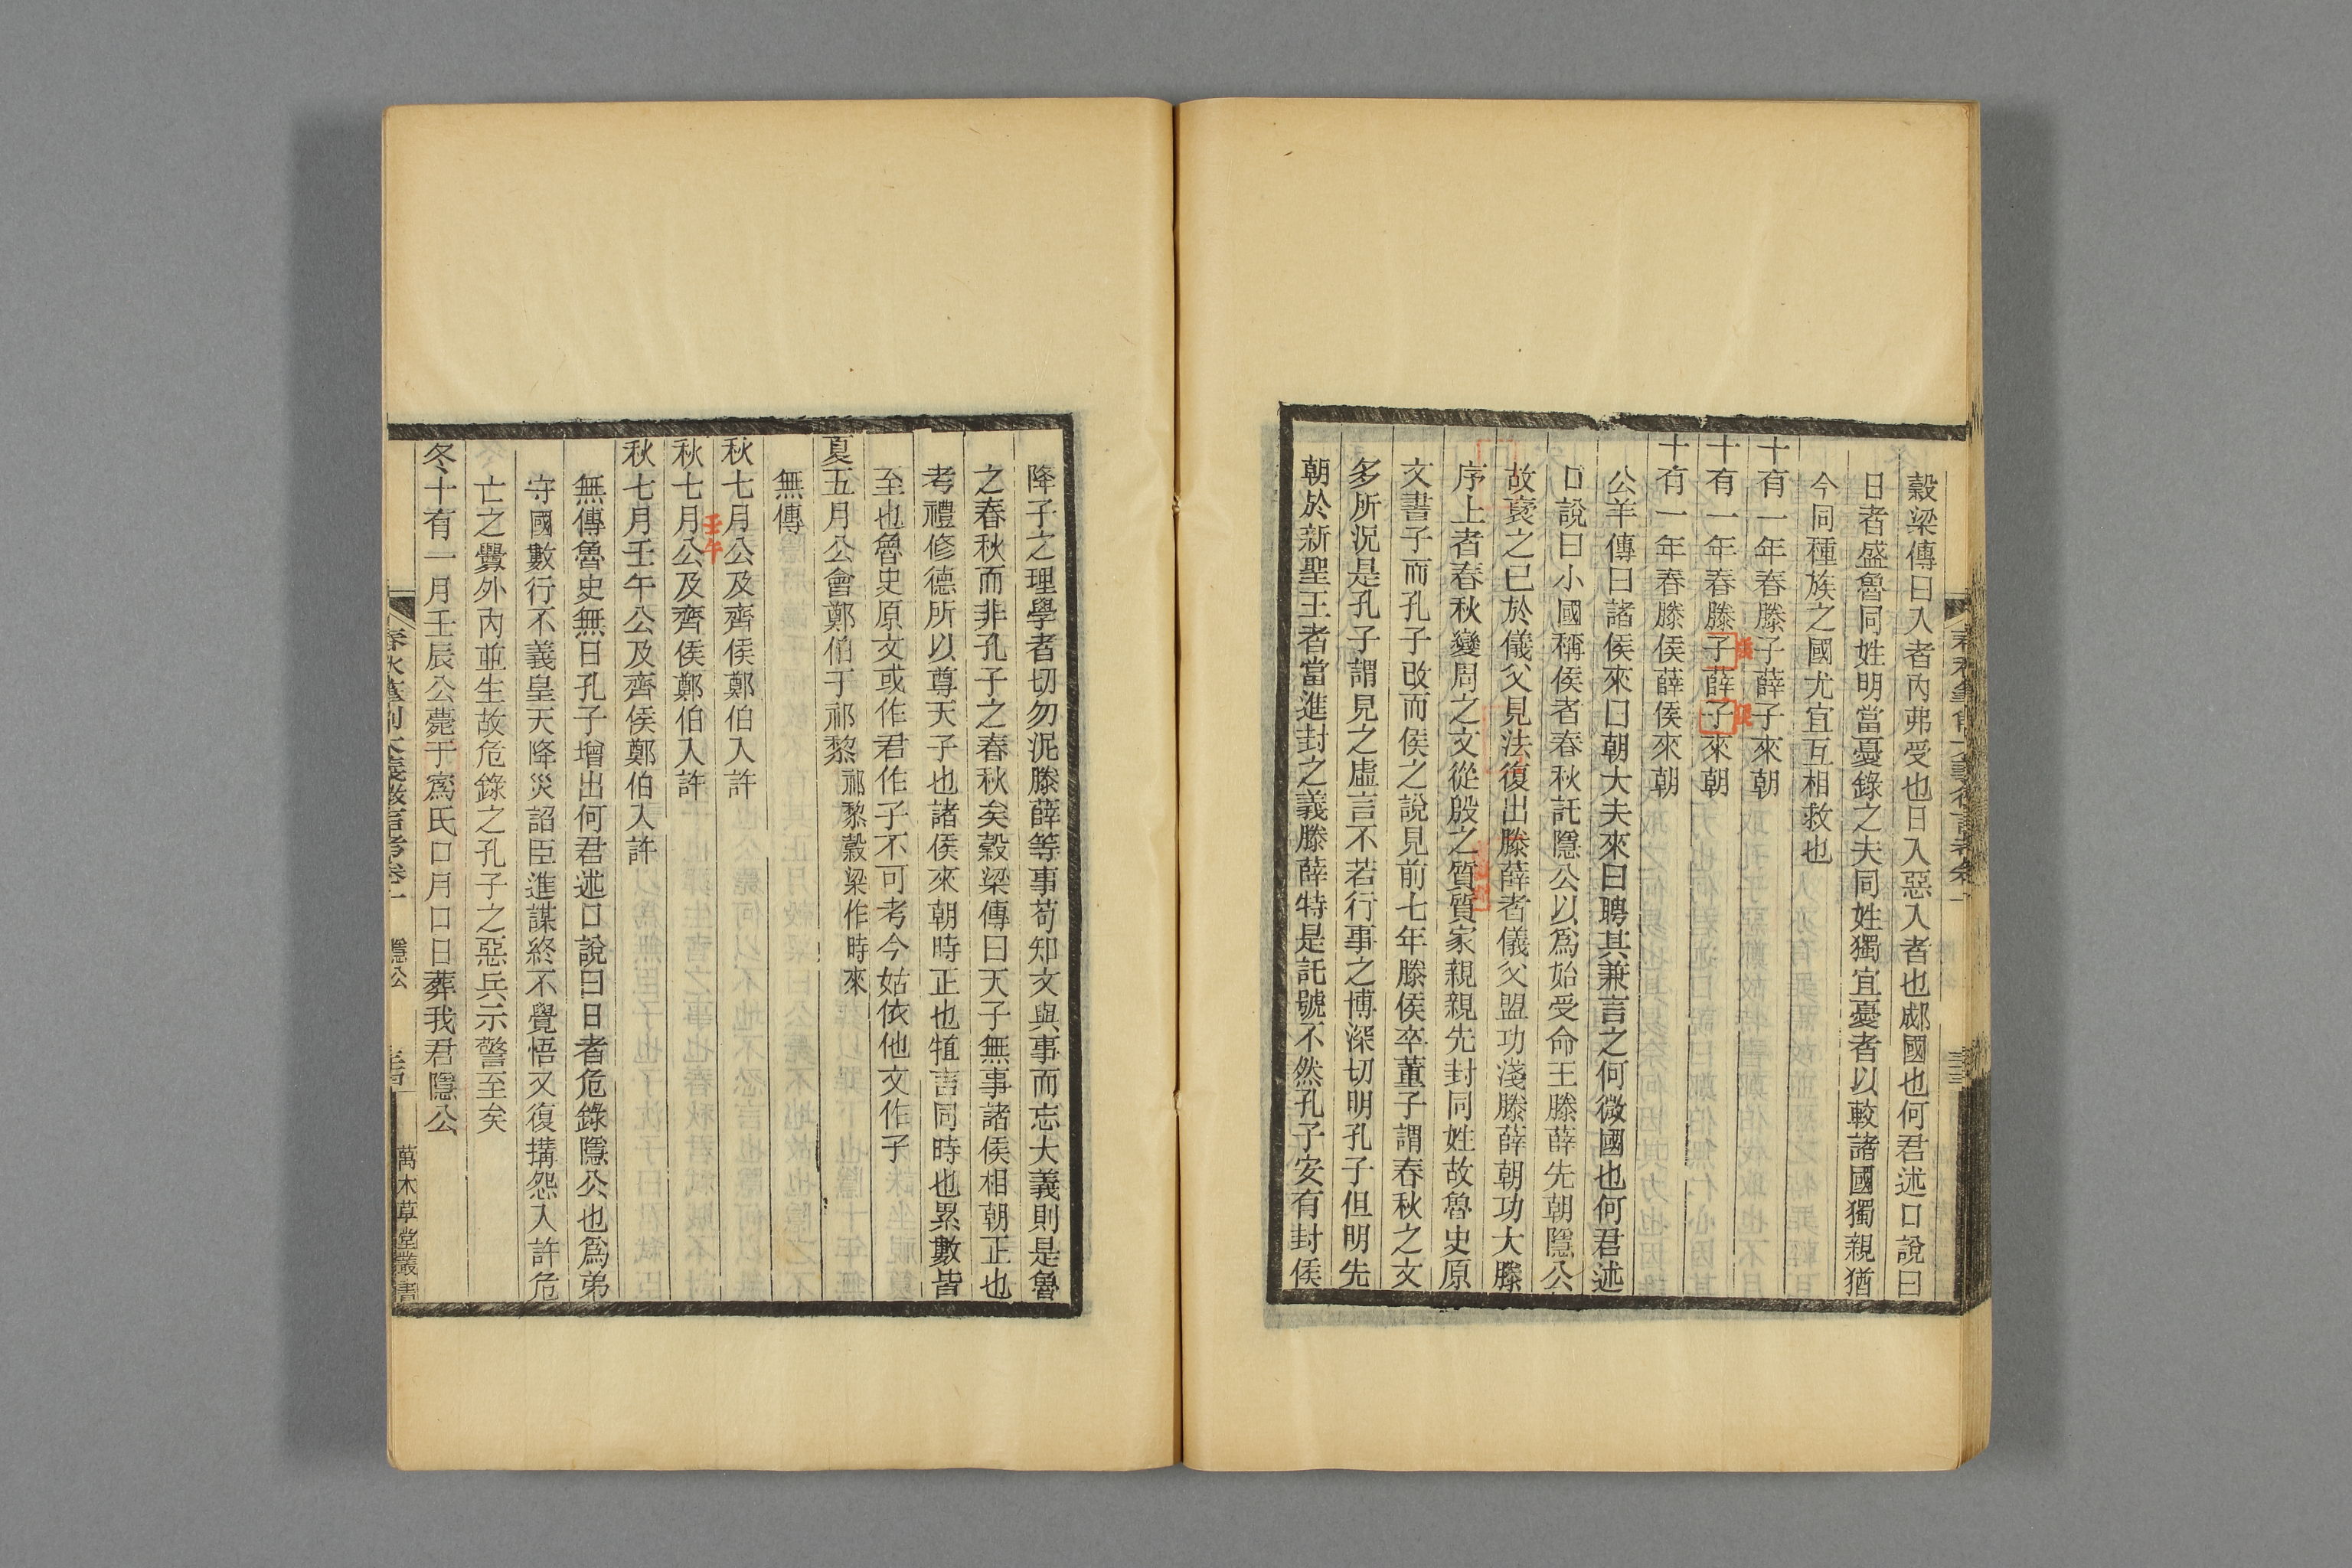 穀梁傳曰入者內弗受也日入惡入者也郕國也何君述口說曰
日者盛魯同姓明當憂錄之夫同姓獨宜憂者以較諸國獨親猶
今同種族之國尤宜互相救也
十有一年春滕子薛子來朝
十有一年春滕子薛子來朝
侯
侯
十有一年春滕侯薛侯來朝
公羊傳曰諸侯來曰朝大夫來曰聘其兼言之何微國也何君述
口說曰小國稱侯者春秋託隱公以爲始受命王滕薛先朝隱公
故襃之已於儀父見法復出滕薛者儀父盟功淺滕薛朝功大滕
序上者春秋變周之文從殷之質質家親親先封同姓故魯史原
文書子而孔子改而侯之說見前七年滕侯卒董子謂春秋之文
多所況是孔子謂見之虛言不若行事之博深切明孔子但明先
朝於新聖王者當進封之義滕薛特是託號不然孔子安有封侯
春秋筆削大義微言考卷一
三十三
降子之理學者切勿泥滕薛等事苟知文與事而忘大義則是魯
之春秋而非孔子之春秋矣穀梁傳曰天子無事諸侯相朝正也
考禮修德所以尊天子也諸侯來朝時正也犆言同時也累數皆
至也魯史原文或作君作子不可考今姑依他文作子
夏五月公會鄭伯于祁黎祁黎穀梁作時來
無傳
秋七月公及齊侯鄭伯入許
壬午
秋七月公及齊侯鄭伯入許
秋七月壬午公及齊侯鄭伯入許
無傳魯史無日孔子增出何君述口說曰日者危錄隱公也爲弟
守國數行不義皇天降災諂臣進謀終不覺悟又復搆怨入許危
亡之釁外內並生故危錄之孔子之惡兵示警至矣
冬十有一月壬辰公薨于寪氏口月口日葬我君隱公
春秋筆削大義微言考卷一
隱公
三十四
萬木草堂叢書